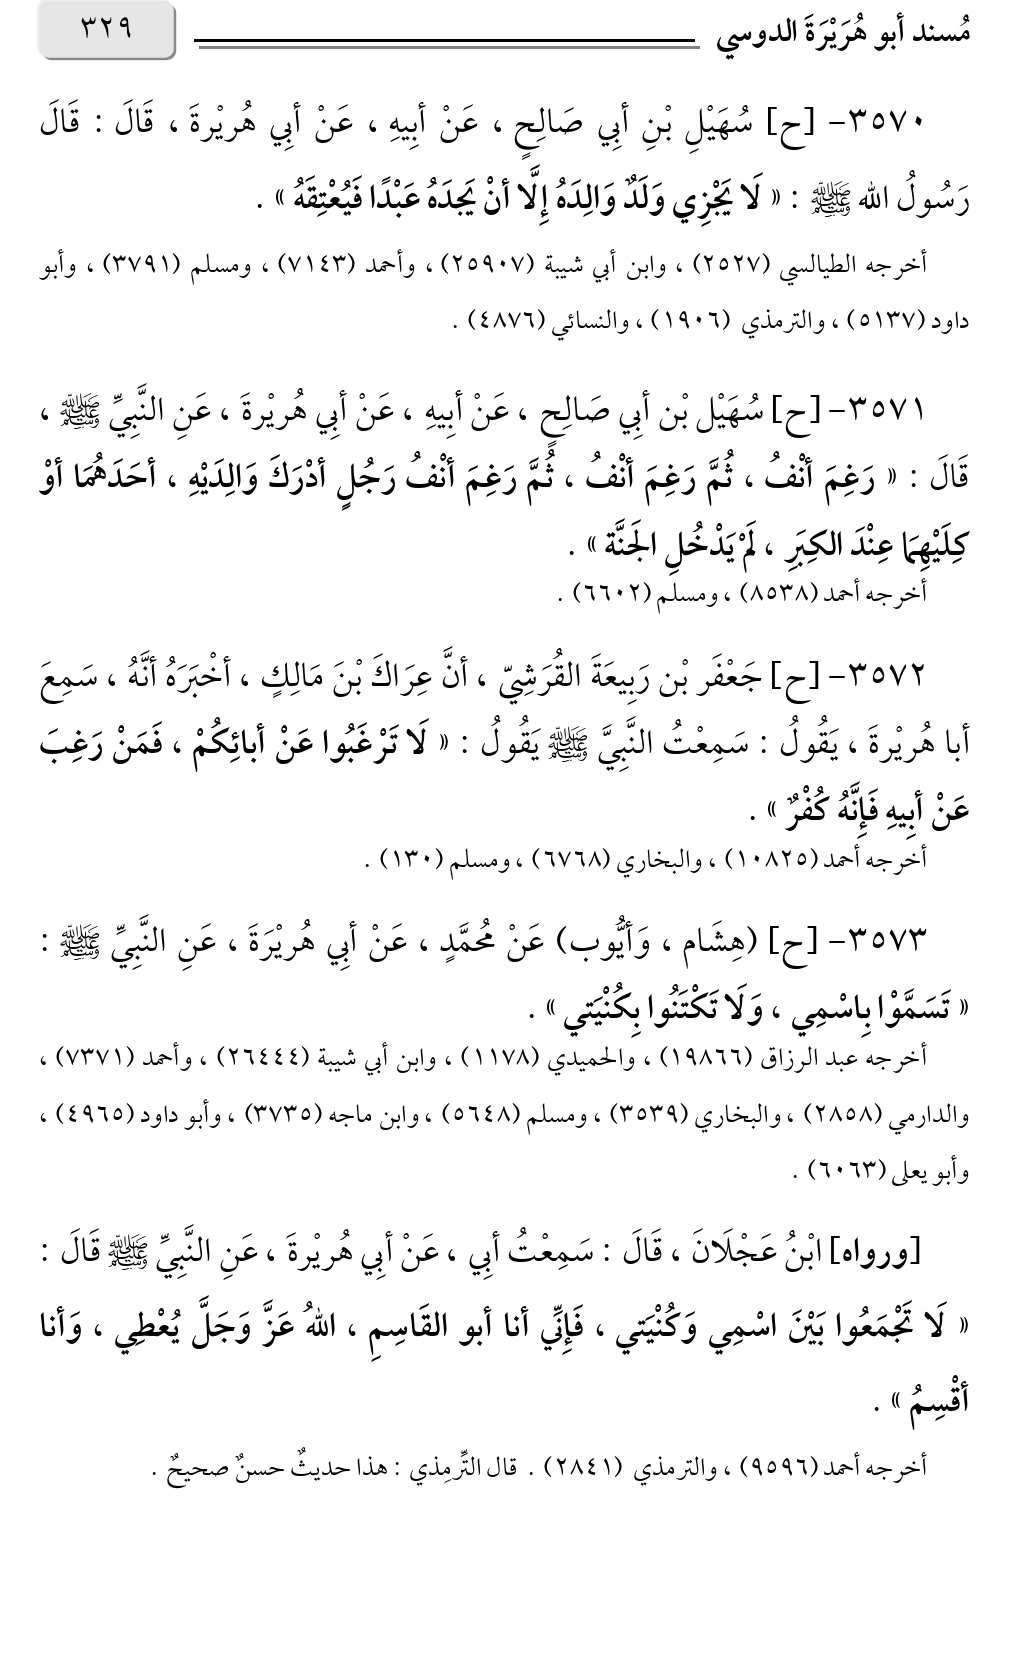 مُسند أبو هُرَيْرَةَ الدوسي
٣٢٩
٣٥٧٠- [ح] سُهَيْلِ بْنِ أبِي صَالِحٍ ، عَنْ أبِيهِ ، عَنْ أبِي هُريْرةَ ، قَالَ : قَالَ
رَسُولُ الله ﷺ : « لَا يَجْزِي وَلَدٌ وَالِدَهُ إِلَّا أنْ يَجِدَهُ عَبْدًا فَيُعْتِقَهُ » .
أخرجه الطيالسي (٢٥٢٧) ، وابن أبي شيبة (٢٥٩٠٧) ، وأحمد (٧١٤٣) ، ومسلم (٣٧٩١) ، وأبو
داود (٥١٣٧) ، والترمذي (١٩٠٦) ، والنسائي (٤٨٧٦) .
٣٥٧١- [ح] سُهَيْل بْن أبِي صَالِحٍ ، عَنْ أبِيهِ ، عَنْ أبِي هُريْرةَ ، عَنِ النَّبِيِّ ﷺ ،
قَالَ : « رَغِمَ أنْفُ ، ثُمَّ رَغِمَ أنْفُ ، ثُمَّ رَغِمَ أنْفُ رَجُلٍ أدْرَكَ وَالِدَيْهِ ، أحَدَهُمَا أوْ
كِلَيْهِمَا عِنْدَ الكِبَرِ ، لَمْ يَدْخُلِ الجَنَّة » .
أخرجه أحمد (٨٥٣٨) ، ومسلم (٦٦٠٢) .
٣٥٧٢- [ح] جَعْفَر بْن رَبِيعَةَ القُرَشِيّ ، أنَّ عِرَاكَ بْنَ مَالِكٍ ، أخْبَرَهُ أنَّهُ ، سَمِعَ
أبا هُريْرةَ ، يَقُولُ : سَمِعْتُ النَّبِيَّ ﷺ يَقُولُ : « لَا تَرْغَبُوا عَنْ أبائِكُمْ ، فَمَنْ رَغِبَ
عَنْ أبِيهِ فَإِنَّهُ كُفْرٌ » .
أخرجه أحمد (١٠٨٢٥) ، والبخاري (٦٧٦٨) ، ومسلم (١٣٠) .
٣٥٧٣- [ح] (هِشَام ، وَأيُّوب) عَنْ مُحمَّدٍ ، عَنْ أبِي هُرَيْرَةَ ، عَنِ النَّبِيِّ ﷺ :
« تَسَمَّوْا بِاسْمِي ، وَلَا تَكْتَنُوا بِكُنْيَتي » .
أخرجه عبد الرزاق (١٩٨٦٦) ، والحميدي (١١٧٨) ، وابن أبي شيبة (٢٦٤٤٤) ، وأحمد (٧٣٧١) ،
والدارمي (٢٨٥٨) ، والبخاري (٣٥٣٩) ، ومسلم (٥٦٤٨) ، وابن ماجه (٣٧٣٥) ، وأبو داود (٤٩٦٥) ،
وأبو يعلى (٦٠٦٣) .
[ورواه] ابْنُ عَجْلَانَ ، قَالَ : سَمِعْتُ أبِي ، عَنْ أبِي هُريْرةَ ، عَنِ النَّبِيِّ ﷺ قَالَ :
« لَا تَجْمَعُوا بَيْنَ اسْمِي وَكُنْيَتي ، فَإِنِّي أنا أبو القَاسِمِ ، اللهُ عَزَّ وَجَلَّ يُعْطِي ، وَأنا
أقْسِمُ » .
أخرجه أحمد (٩٥٩٦) ، والترمذي (٢٨٤١) . قال التِّرمِذي : هذا حديثٌ حسنٌ صحيحٌ .